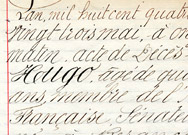 L'an mil huit cent quatre
vingt trois mai, à on
matin. acte de Décès
Hugo, agé de qua
ans, membre de l'
Française, Sénate